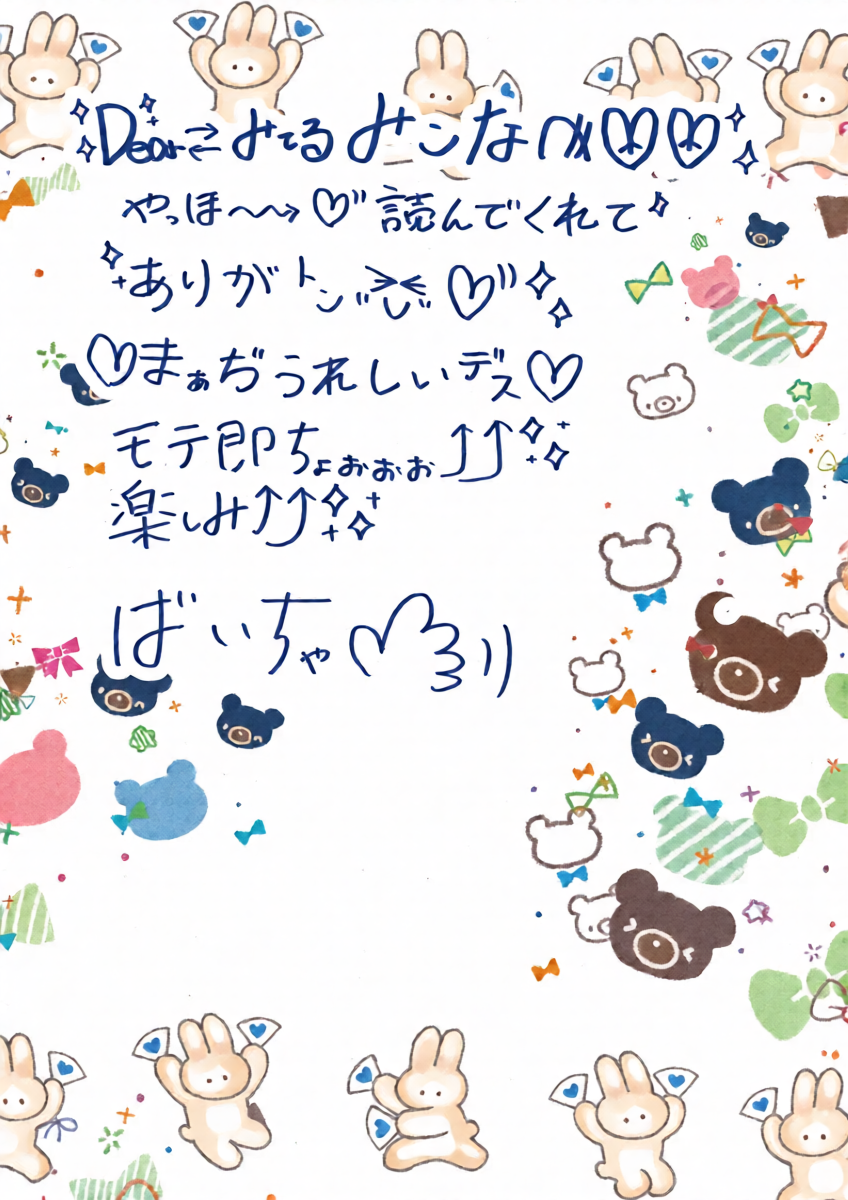 Dear⇄みてるみんなへ♡♡
やっほ〜〜→♡"読んでくれて
ありがトン"♡"
♡まぁぢうれしいデス♡
モテ即ちょぉぉぉ⤴⤴
楽しみ⤴⤴
ばいちゃ♡